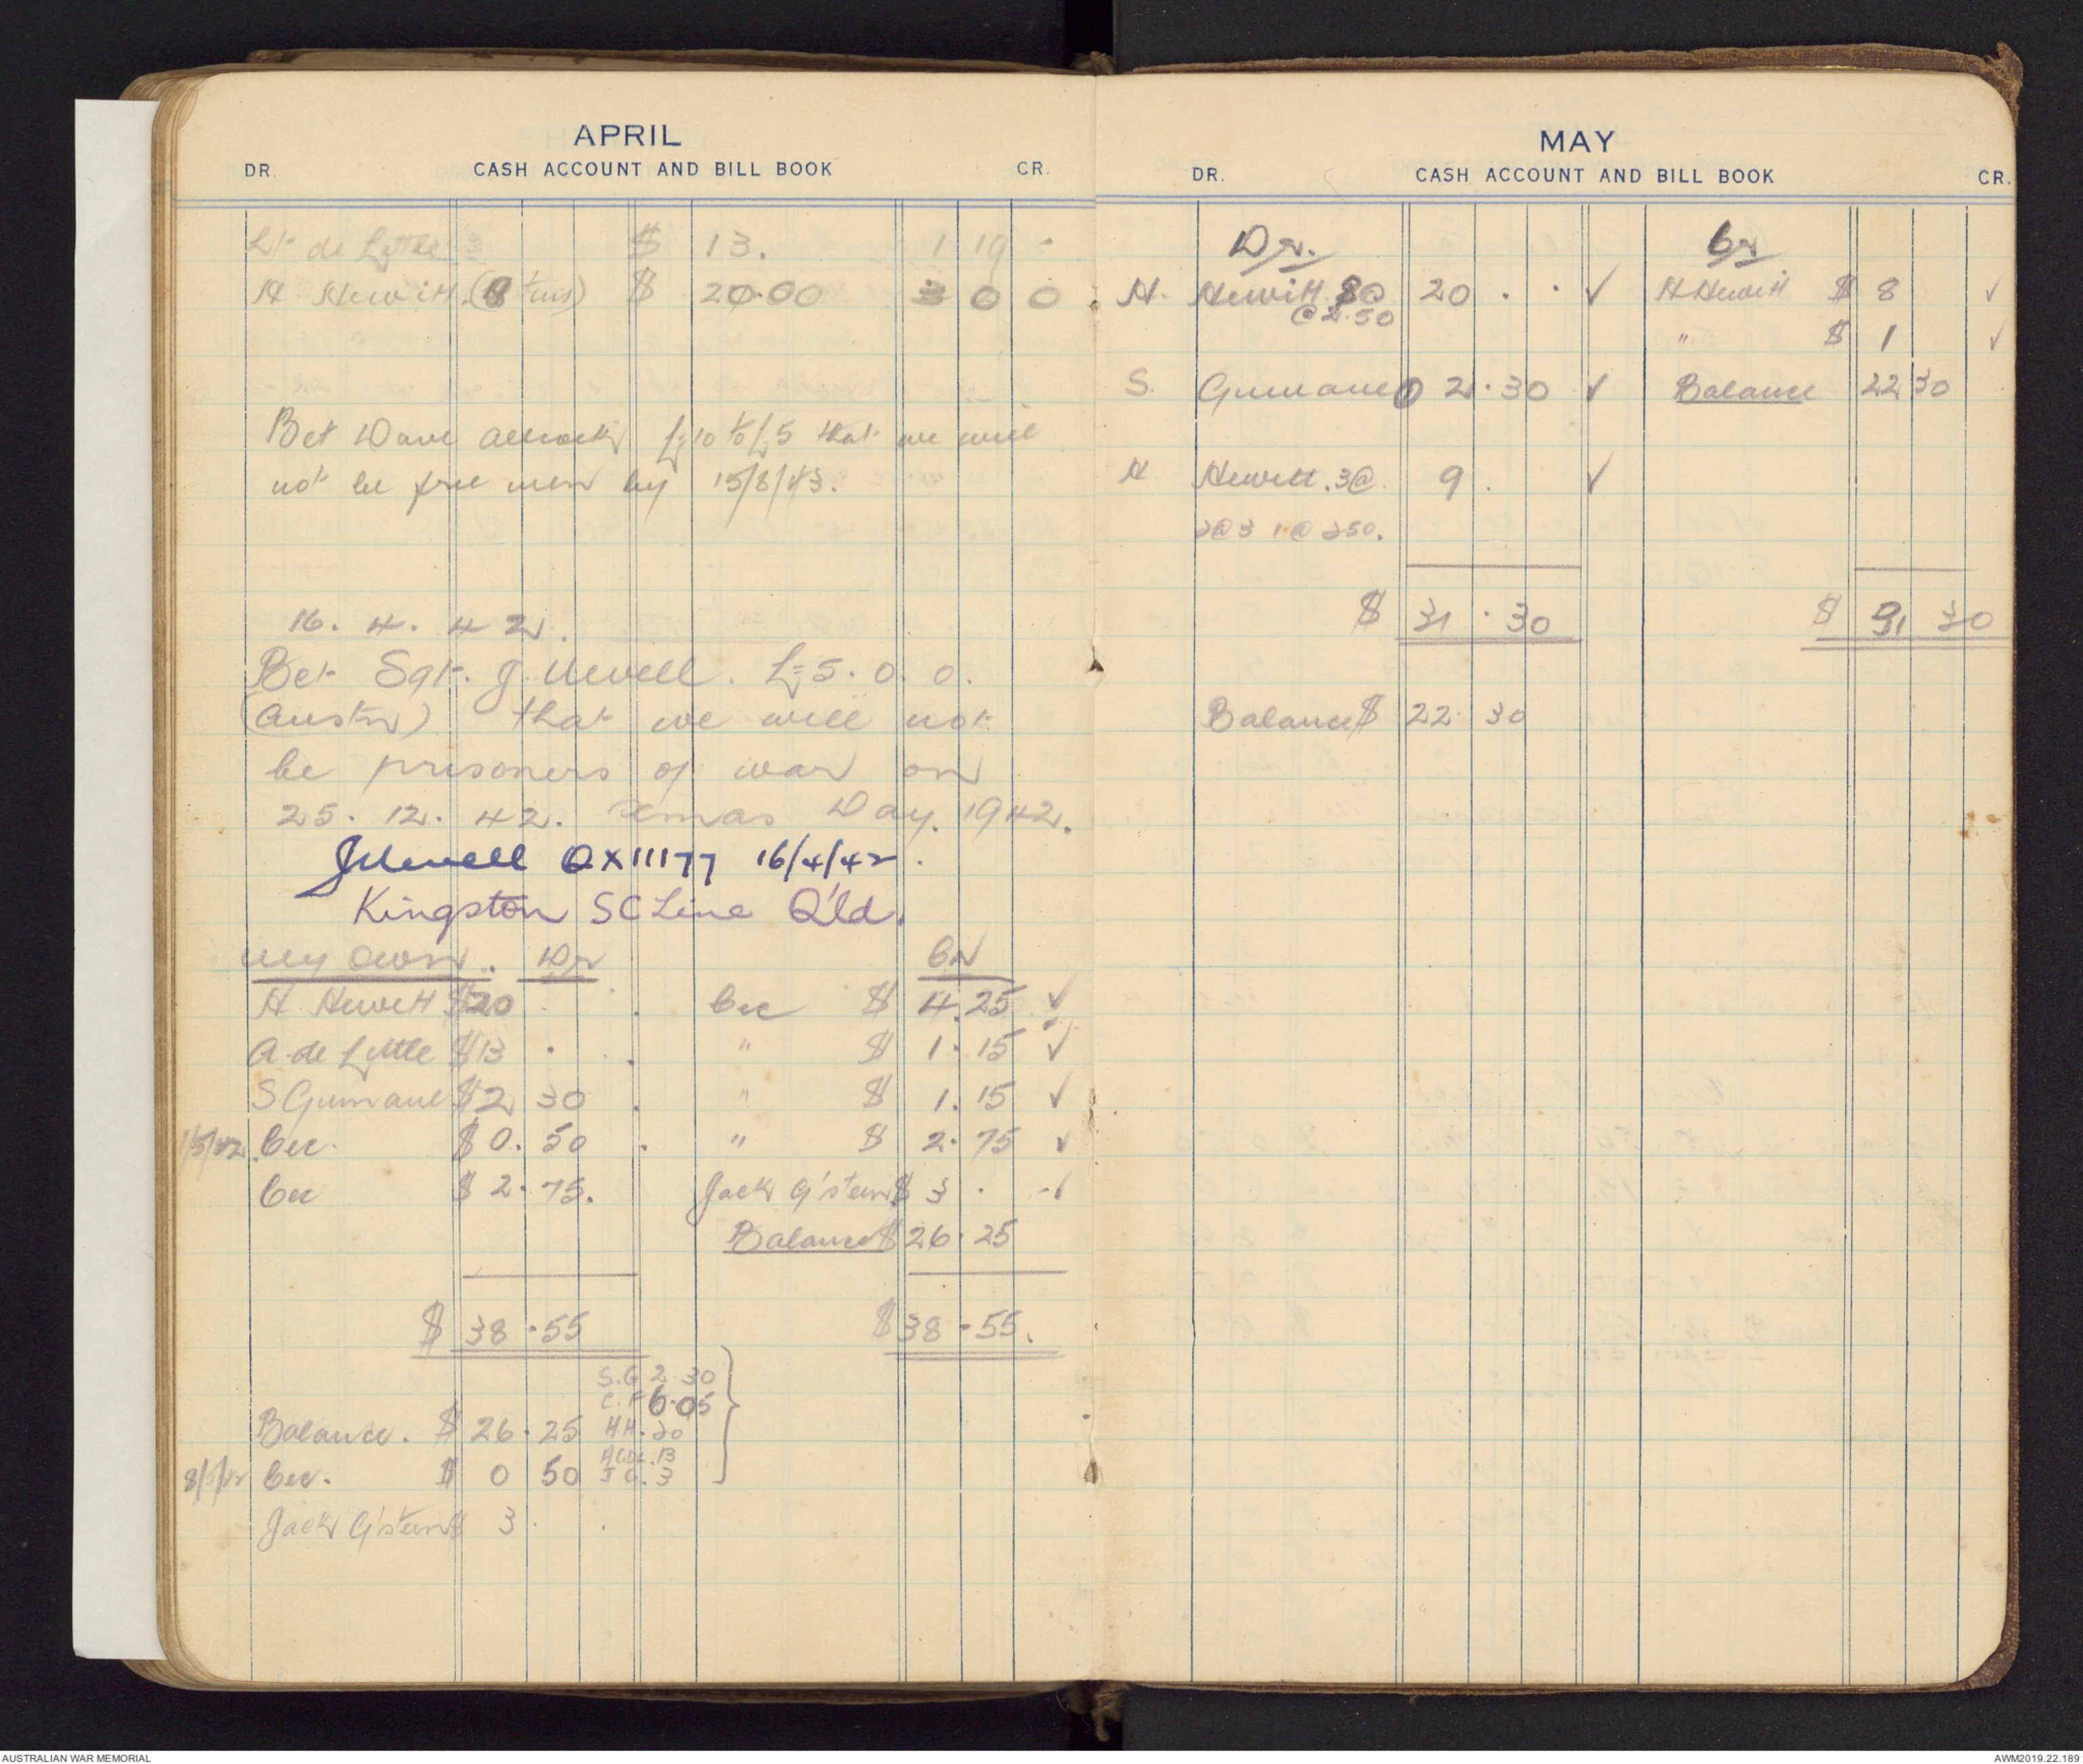 APRIL
DR. CASH ACCOUNT AND BILL BOOK CR.
Lt de Little $ 13. 1 19 -
H Hewitt (8 tins) $ 20.00 3 0 0
Bet Dave £10 to £5 that we will
not be free men by 15/8/43.
16. 4. 42.
Bet Sgt. J. Newell. £5. 0. 0.
(Austn) that we will not
be prisoners of war on
25. 12. 42. Xmas Day. 1942.
JNewell QX11177 16/4/42.
Kingston SC Line Q'ld.
My Own.. Dr Cr
H. Hewitt $20 . . Cec $ 4.25 ✓
A. de Little $13 . . " $ 1. 15 ✓
S Gumane $2 30 . " $ 1. 15 ✓
1/5/42 Cec. $ 0. 50 . " $ 2. 75 ✓
Cec $ 2. 75. Jack G'stein $ 3 . - ✓
Balance $ 26. 25
$ 38.55 $ 38.55.
S.G 2 30
C.F 6.05
Balance. $ 26.25 HH. 20
A de L. 13
8/5/42 Cec. $ 0 50 J G. 3
Jack G'stein $ 3 . .
MAY
DR. CASH ACCOUNT AND BILL BOOK CR.
Dr. Cr
H. Hewitt 8@ 20 . . ✓ H Hewitt $ 8 ✓
@ 2.50
" $ 1 ✓
S. Gumane 2.30 ✓ Balance 22 30
H Hewitt. 3@ 9 . ✓
2@3 1@250.
$ 31 . 30 $ 31 30
Balance $ 22. 30
AUSTRALIAN WAR MEMORIAL AWM2019.22.189